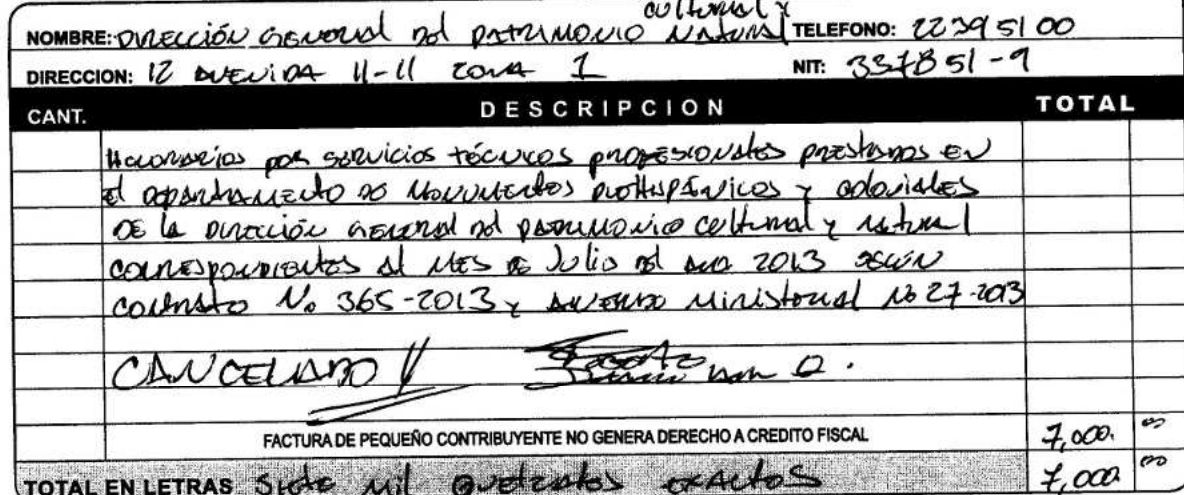 NOMBRE: DIRECCIÓN GENERAL DEL PATRIMONIO CULTURAL Y NATURAL TELEFONO: 22395100
DIRECCION: 12 AVENIDA 11-11 ZONA 1 NIT: 337851-9
CANT. DESCRIPCION TOTAL
Honorarios por servicios técnicos profesionales prestados en
el departamento de Monumentos prehispánicos y coloniales
DE la Dirección General del patrimonio cultural y natural
correspondientes al mes de Julio del año 2013 según
contrato No 365-2013 y Acuerdo Ministerial No 27-2013
CANCELADO
FACTURA DE PEQUEÑO CONTRIBUYENTE NO GENERA DERECHO A CREDITO FISCAL 7,000. 00
TOTAL EN LETRAS Siete mil quetzales exactos 7,000. 00